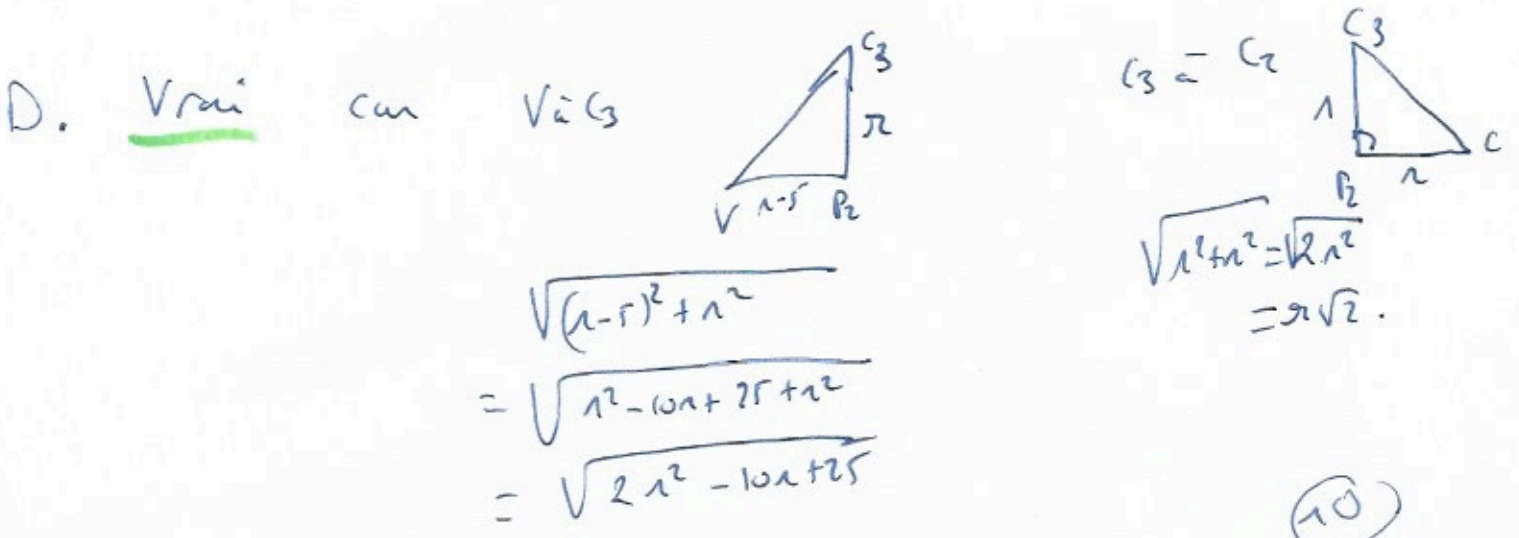 D. Vrai car V à C3
C3
r
V r-5 P2
√((r-5)² + r²)
= √(r² - 10r + 25 + r²)
= √(2r² - 10r + 25)
C3 à C2
C3
r
P2 r C
√(r² + r²) = √(2r²)
= r√2.
10